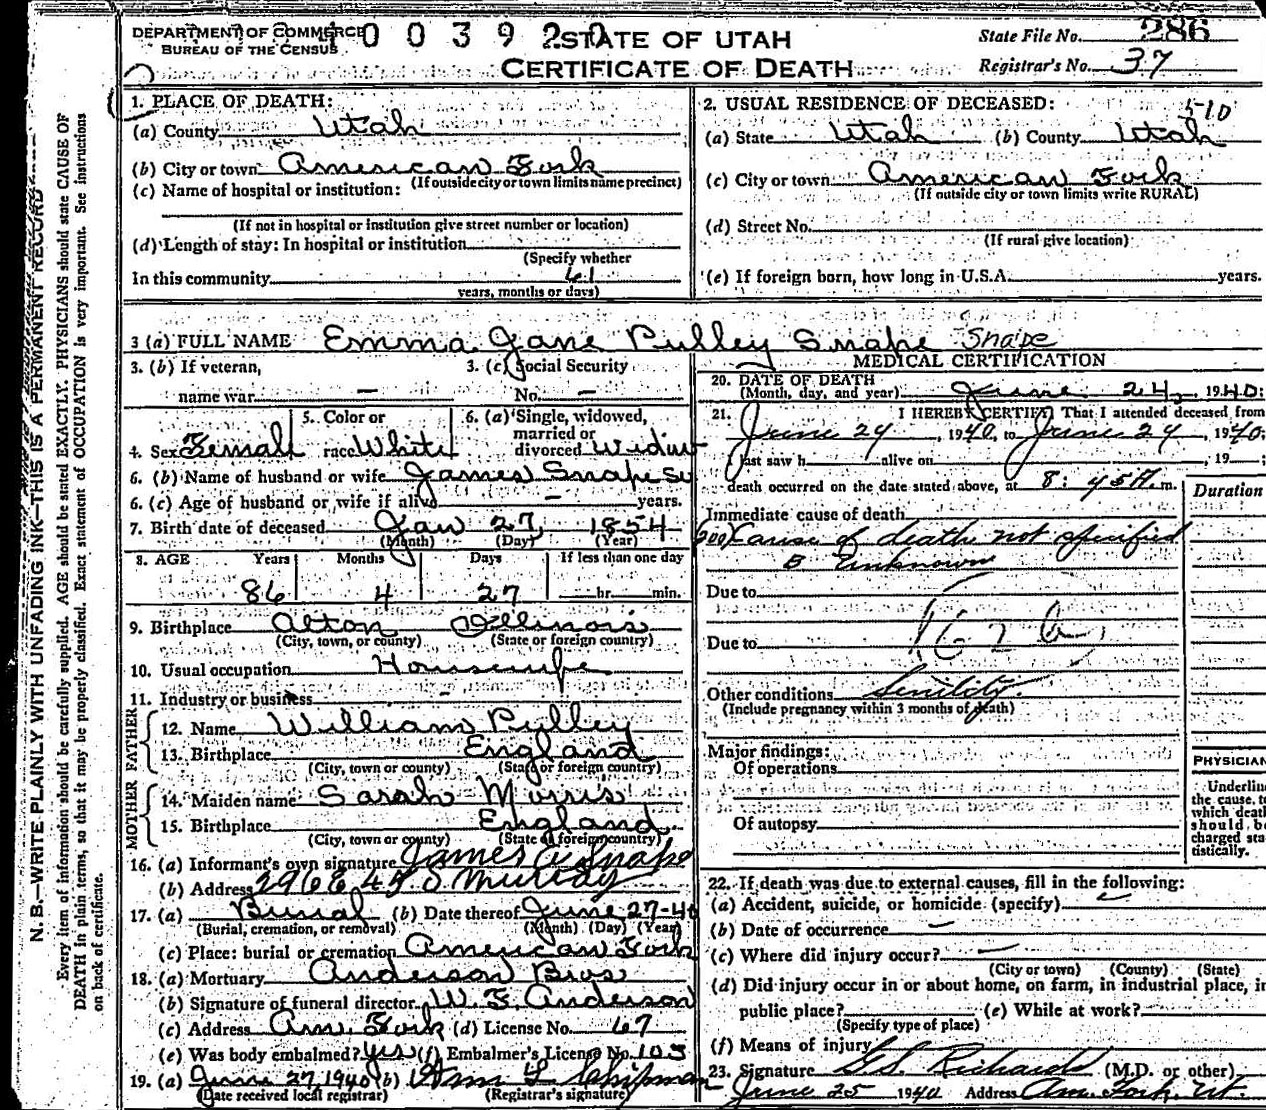 DEPARTMENT OF COMMERCE
BUREAU OF THE CENSUS
0 0 3 9 2
STATE OF UTAH
CERTIFICATE OF DEATH
State File No. 286
Registrar's No. 37
1. PLACE OF DEATH:
(a) County Utah
(b) City or town American Fork
(If outside city or town limits name precinct)
(c) Name of hospital or institution:
(If not in hospital or institution give street number or location)
(d) Length of stay: In hospital or institution
(Specify whether
In this community 61
years, months or days)
2. USUAL RESIDENCE OF DECEASED: 510
(a) State Utah (b) County Utah
(c) City or town American Fork
(If outside city or town limits write RURAL)
(d) Street No.
(If rural give location)
(e) If foreign born, how long in U.S.A. years.
3 (a) FULL NAME Emma Jane Pulley Snape Snape
3. (b) If veteran,
name war —
3. (c) Social Security
No. —
4. Sex Female
5. Color or
race White
6. (a) Single, widowed,
married or
divorced Widow
6. (b) Name of husband or wife James Snape Sr
6. (c) Age of husband or wife if alive — years.
7. Birth date of deceased Jan 27, 1854
(Month) (Day) (Year)
8. AGE Years Months Days If less than one day
86 4 27 hr. min.
9. Birthplace Alton Illinois
(City, town, or county) (State or foreign country)
10. Usual occupation Housewife
11. Industry or business
FATHER
12. Name William Pulley
13. Birthplace England
(City, town or county) (State or foreign country)
MOTHER
14. Maiden name Sarah Morris
15. Birthplace England
(City, town or county) (State or foreign country)
16. (a) Informant's own signature James A Snape
(b) Address 296 E 45 S Murray
17. (a) Burial (b) Date thereof June 27-40
(Burial, cremation, or removal) (Month) (Day) (Year)
(c) Place: burial or cremation American Fork
18. (a) Mortuary Anderson Bros
(b) Signature of funeral director W. F. Anderson
(c) Address Am. Fork (d) License No. 67
(e) Was body embalmed? Yes (f) Embalmer's License No. 103
19. (a) June 27, 1940 (b) Chipman
(Date received local registrar) (Registrar's signature)
MEDICAL CERTIFICATION
20. DATE OF DEATH
(Month, day, and year) June 24, 1940:
21. I HEREBY CERTIFY, That I attended deceased from
June 24, 1940, to June 24, 1940;
last saw h alive on , 19 ;
death occurred on the date stated above, at 8:45A. m.
Duration
Immediate cause of death
200 Cause of death not specified
Unknown
Due to
Due to 162 b
Other conditions Senility.
(Include pregnancy within 3 months of death)
Major findings:
Of operations
Of autopsy
PHYSICIAN
Underline
the cause, to
which death
should be
charged sta-
tistically.
22. If death was due to external causes, fill in the following:
(a) Accident, suicide, or homicide (specify) —
(b) Date of occurrence —
(c) Where did injury occur? —
(City or town) (County) (State)
(d) Did injury occur in or about home, on farm, in industrial place, in
public place? (e) While at work?
(Specify type of place)
(f) Means of injury
23. Signature G.S. Richards (M.D. or other)
June 25 1940 Address Am. Fork, Ut.
N. B.—WRITE PLAINLY WITH UNFADING INK—THIS IS A PERMANENT RECORD
Every item of information should be carefully supplied. AGE should be stated EXACTLY. PHYSICIANS should state CAUSE OF
DEATH in plain terms, so that it may be properly classified. Exact statement of OCCUPATION is very important. See instructions
on back of certificate.